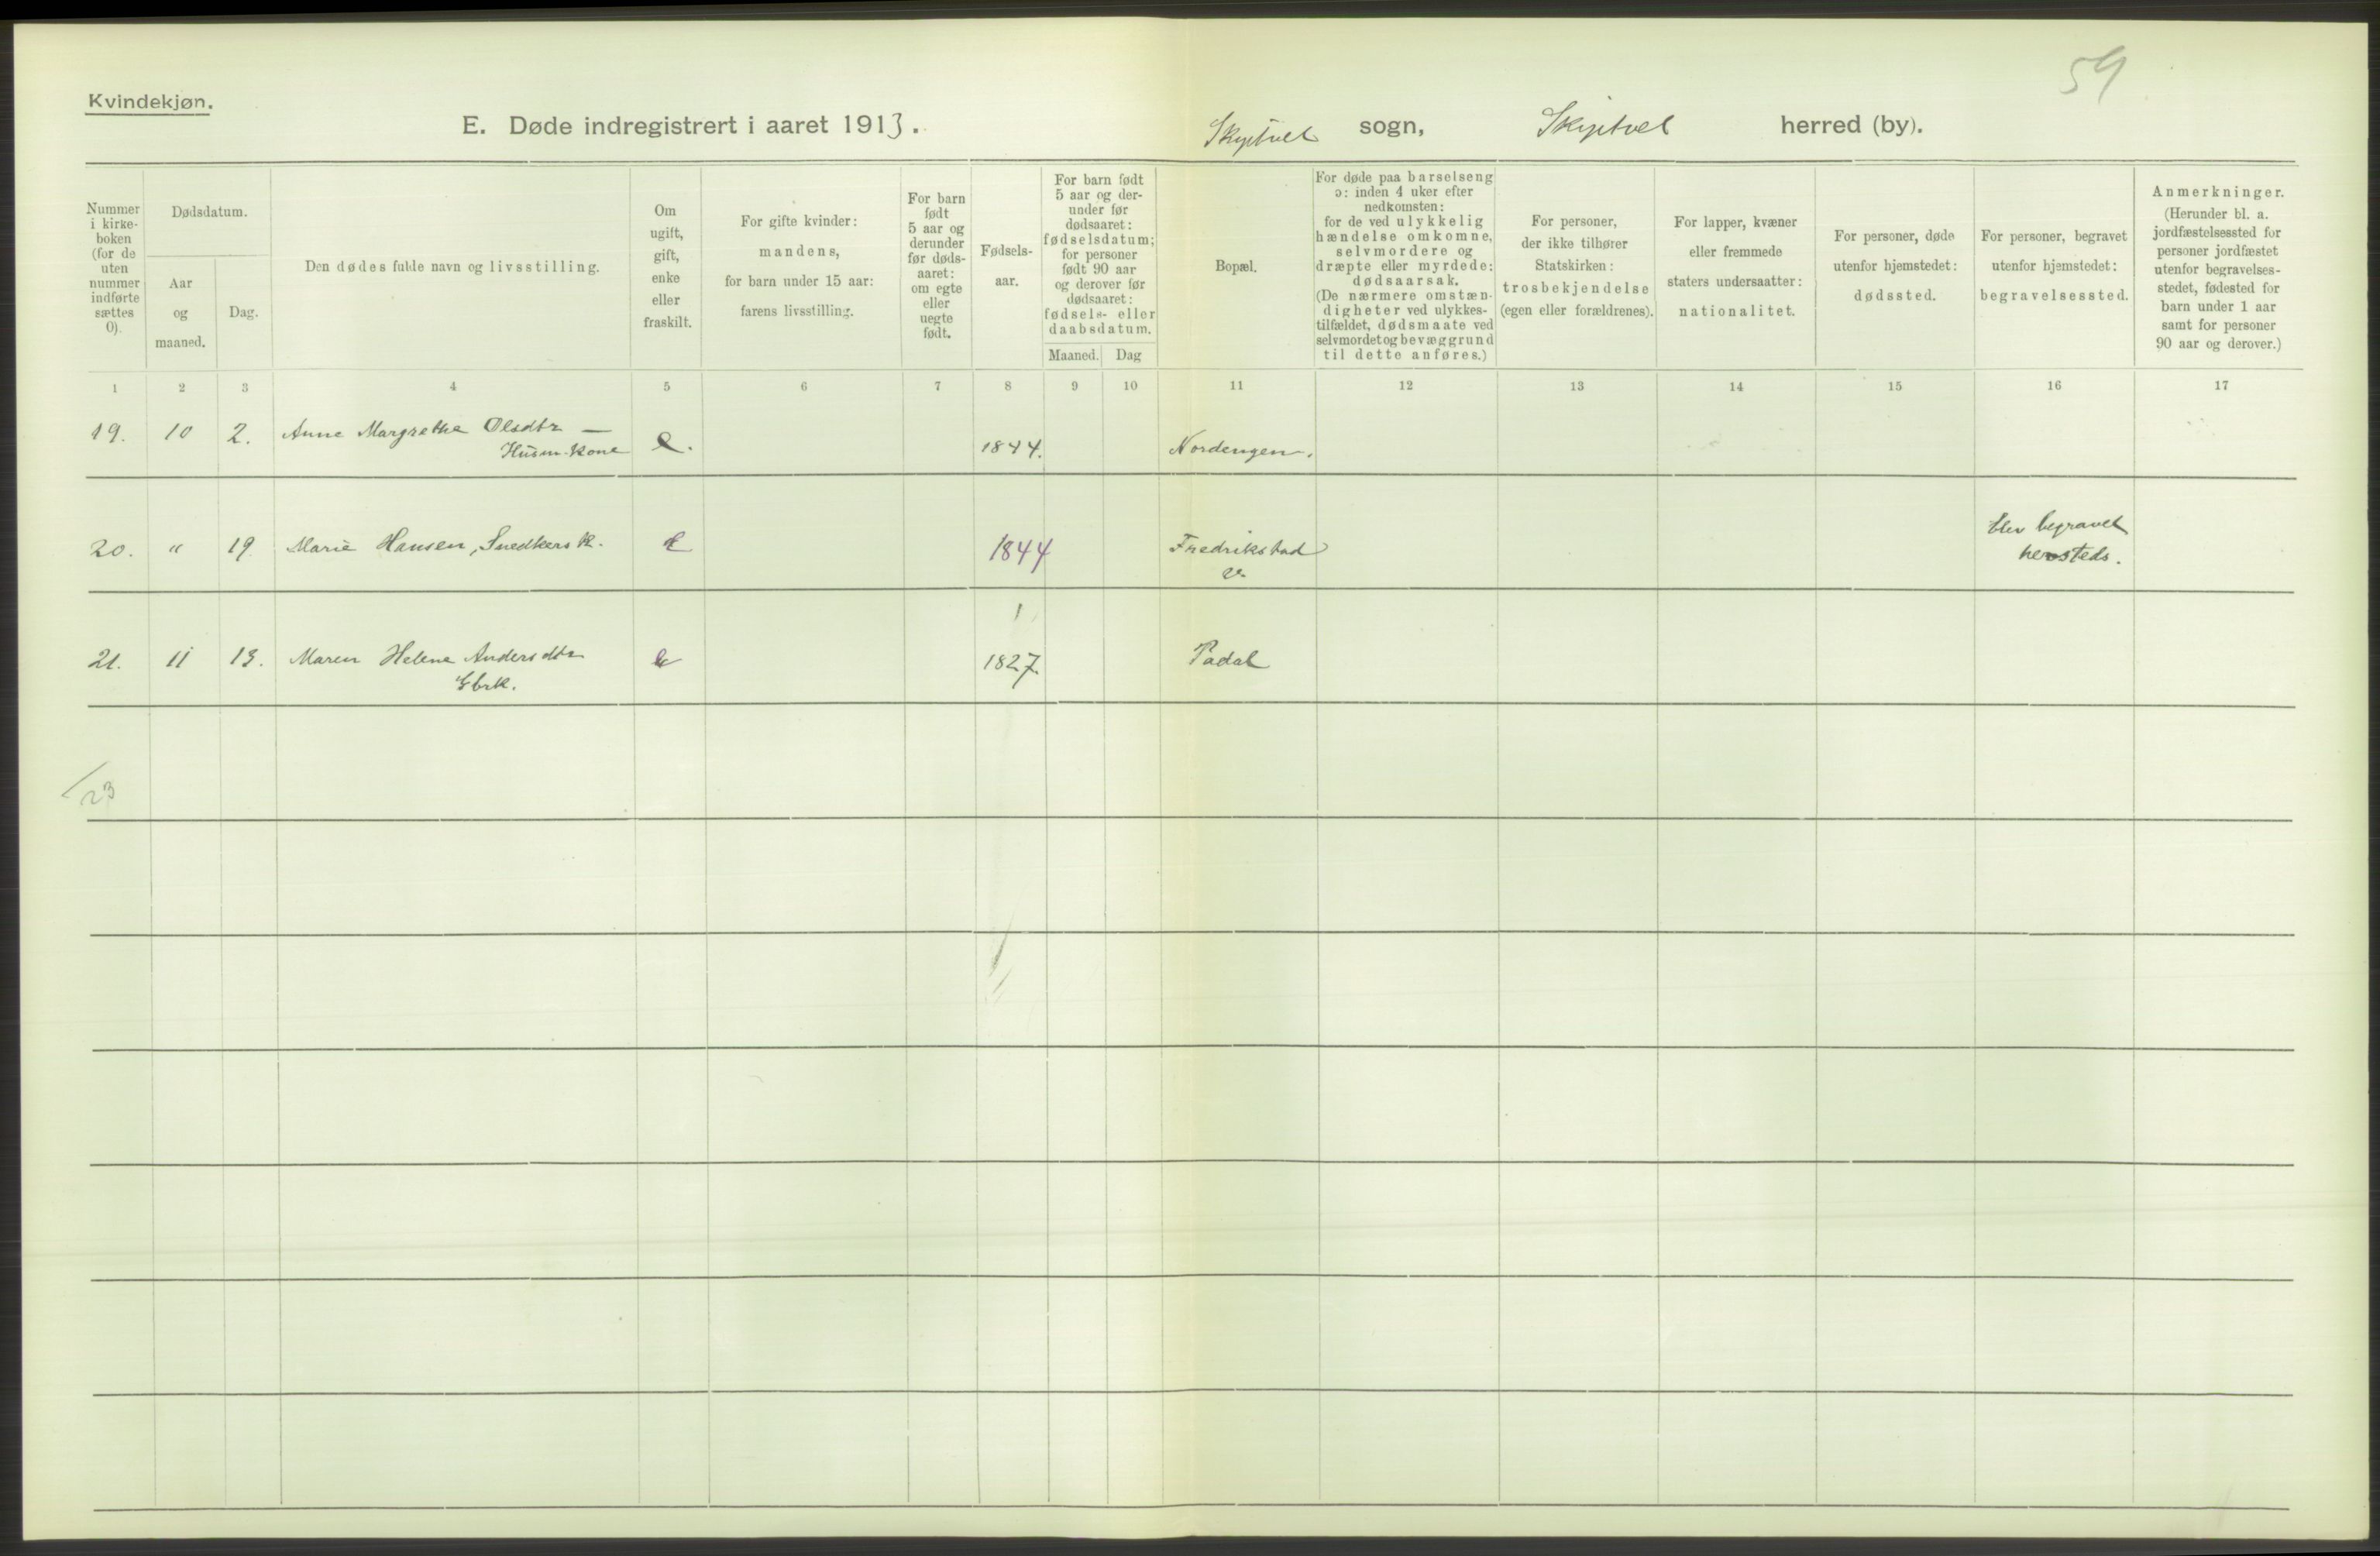 59
Kvindekjøn.
E. Døde indregistrert i aaret 1913.
Skjptvet sogn, Skjptvet herred (by).
Nummer i kirke-boken (for de uten nummer indførte sættes 0).
Dødsdatum.
Aar og maaned.
Dag.
Den dødes fulde navn og livsstilling.
Om ugift, gift, enke eller fraskilt.
For gifte kvinder: mandens, for barn under 15 aar: farens livsstilling.
For barn født 5 aar og derunder før døds-aaret: om egte eller uegte født.
Fødsels-aar.
For barn født 5 aar og der-under før dødsaaret: fødselsdatum; for personer født 90 aar og derover før dødsaaret: fødsels- eller daabsdatum.
Maaned. Dag
Bopæl.
For døde paa barselseng ɔ: inden 4 uker efter nedkomsten: for de ved ulykkelig hændelse omkomne, selvmordere og dræpte eller myrdede: dødsaarsak. (De nærmere omstæn-digheter ved ulykkes-tilfældet, dødsmaate ved selvmordet og bevæggrund til dette anføres.)
For personer, der ikke tilhører Statskirken: trosbekjendelse (egen eller forældrenes).
For lapper, kvæner eller fremmede staters undersaatter: nationalitet.
For personer, døde utenfor hjemstedet: dødssted.
For personer, begravet utenfor hjemstedet: begravelsessted.
Anmerkninger. (Herunder bl. a. jordfæstelsessted for personer jordfæstet utenfor begravelses-stedet, fødested for barn under 1 aar samt for personer 90 aar og derover.)
1 2 3 4 5 6 7 8 9 10 11 12 13 14 15 16 17
19. 10 2. Anne Margrethe Olsdtr — e. 1844. Nordengen.
Husm. kone
20. " 19 Marie Hansen, Snedkers k. e 1844 Fredrikstad blev begravet
hersteds.
21. 11 13. Maren Helene Andersdtr e 1827. Padal
Gbrk.
23